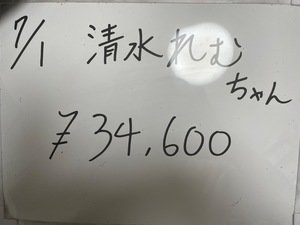 7/1 清水れむ
ちゃん
¥34,600